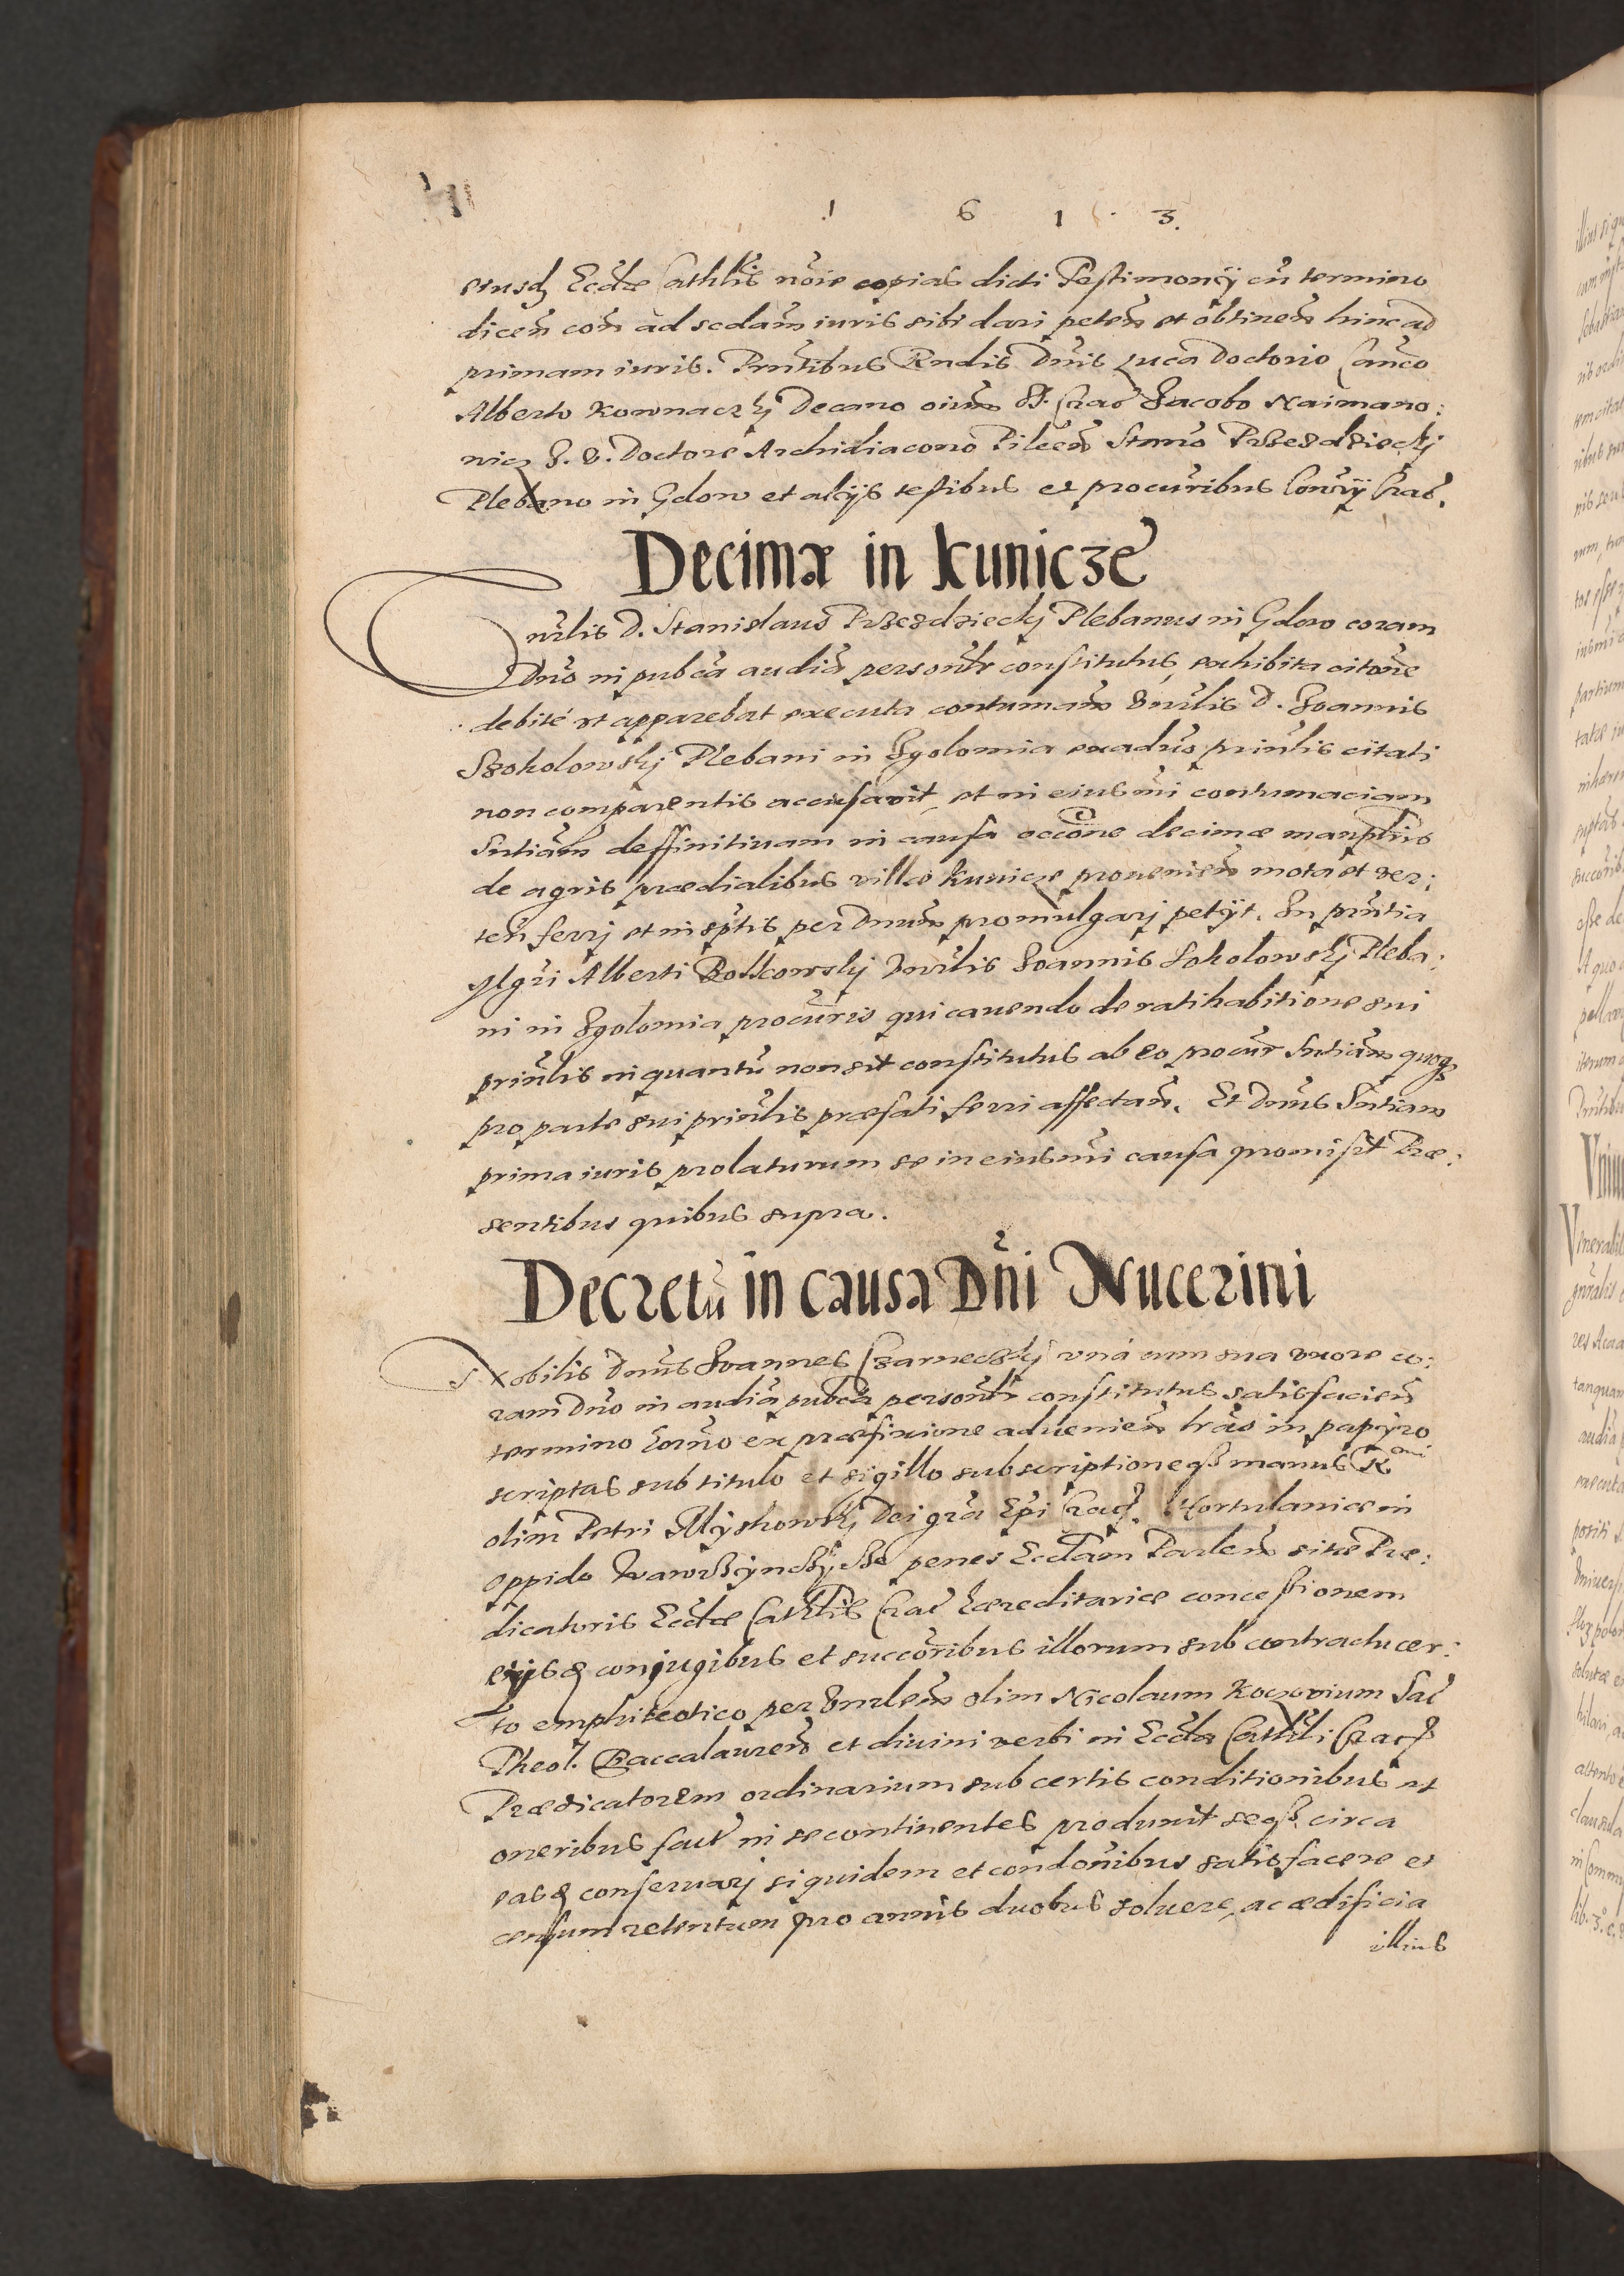 1 6 1 3.
eiusdem Eccliæ Cathlis noie copias dicti Testimonij cu termino
dicen con ad scdam iuris sibi dari peten et obtinen hinc ad
primam iuris. Pntibus Rndis Dnis Luca Doctorio Canco
Alberto Kownaczkj Decano oium SS. Crac Jacobo Naimano:
nicz J. V. Doctore Archidiacono Pilcen Stano Przezdzieckj
Plebano in Gdow et alijs testibus et procuribus Conrij Crac.
Decimæ in Kunicze
Vnrlis D. Stanislaus Przezdzieckj Plebanus in Gdow coram
Dno in pubca audia personlr constitutus, exhibita citone
debité ut apparebat executa contumam Vnrlis D. Joannis
Szokolowskj Plebani in Igolomia exaduo prinlis citati
non comparentis accusavit, et in eiusmi contumaciam
Sntiam deffinitivam in causa occone decimæ manplris
de agris prædialibus villæ Kunicze provenien mota et ver:
ten ferrj et in sptis per Dnum promulgarj petijt. In pntia
Mgri Alberti Bolkowskj Vnrlis Joannis Sokolowskj Pleba:
ni in Igolomia procuris qui cavendo de ratihabitione sui
prinlis inquantu non sit constitutus ab eo procur Sntiam quoq3
pro parte sui prinlis præfati ferri affectan. Et Dnus Sntiam
prima iuris prolaturum se in eiusmi causa promisit Præ:
sentibus quibus supra.
Decretu in causa Dni Nucerini
Nobilis Dnus Joannes Czarneczkj uná cum sua uxore co:
ram Dno in audia pubca personlr constitutus satisfacien
termino horno ex præfixione advenien lras in papyro
scriptas sub titulo et sigillo subscriptioneq3 manus R mi
olim Petri Myskowskj Dei gra Epi Crac. Hortulaniæ in
oppido penes Eccliam Parlem sitæ Præ:
dicatoris Eccliæ Cathlis Crac hæreditariæ concessionem
eijsd conjugibus et succoribus illorum sub contractu cer:
to emphiteotico per Vnrlem olim Nicolaum Koczovium Sac
Theol. Baccalaureu et divini verbi in Eccla Cathli Crac
Prædicatorem ordinarium sub certis conditionibus et
oneribus fact in se continentes produxit seq3 circa
easd conservarj siquidem et condonibus satisfacere et
censum retentum pro annis duobus solvere, ac ædificia
illius